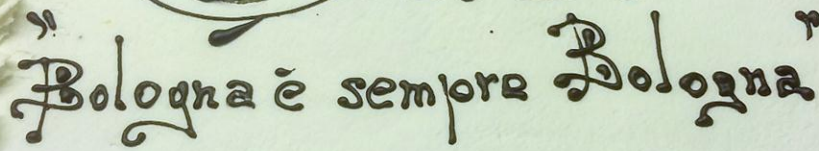 "Bologna è sempre Bologna"